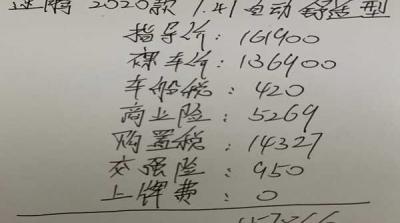 迈腾 2020款 1.4T 自动 舒适型
指导价：161900
裸车价：136900
车船税：420
商业险：5269
购置税：14327
交强险：950
上牌费：0